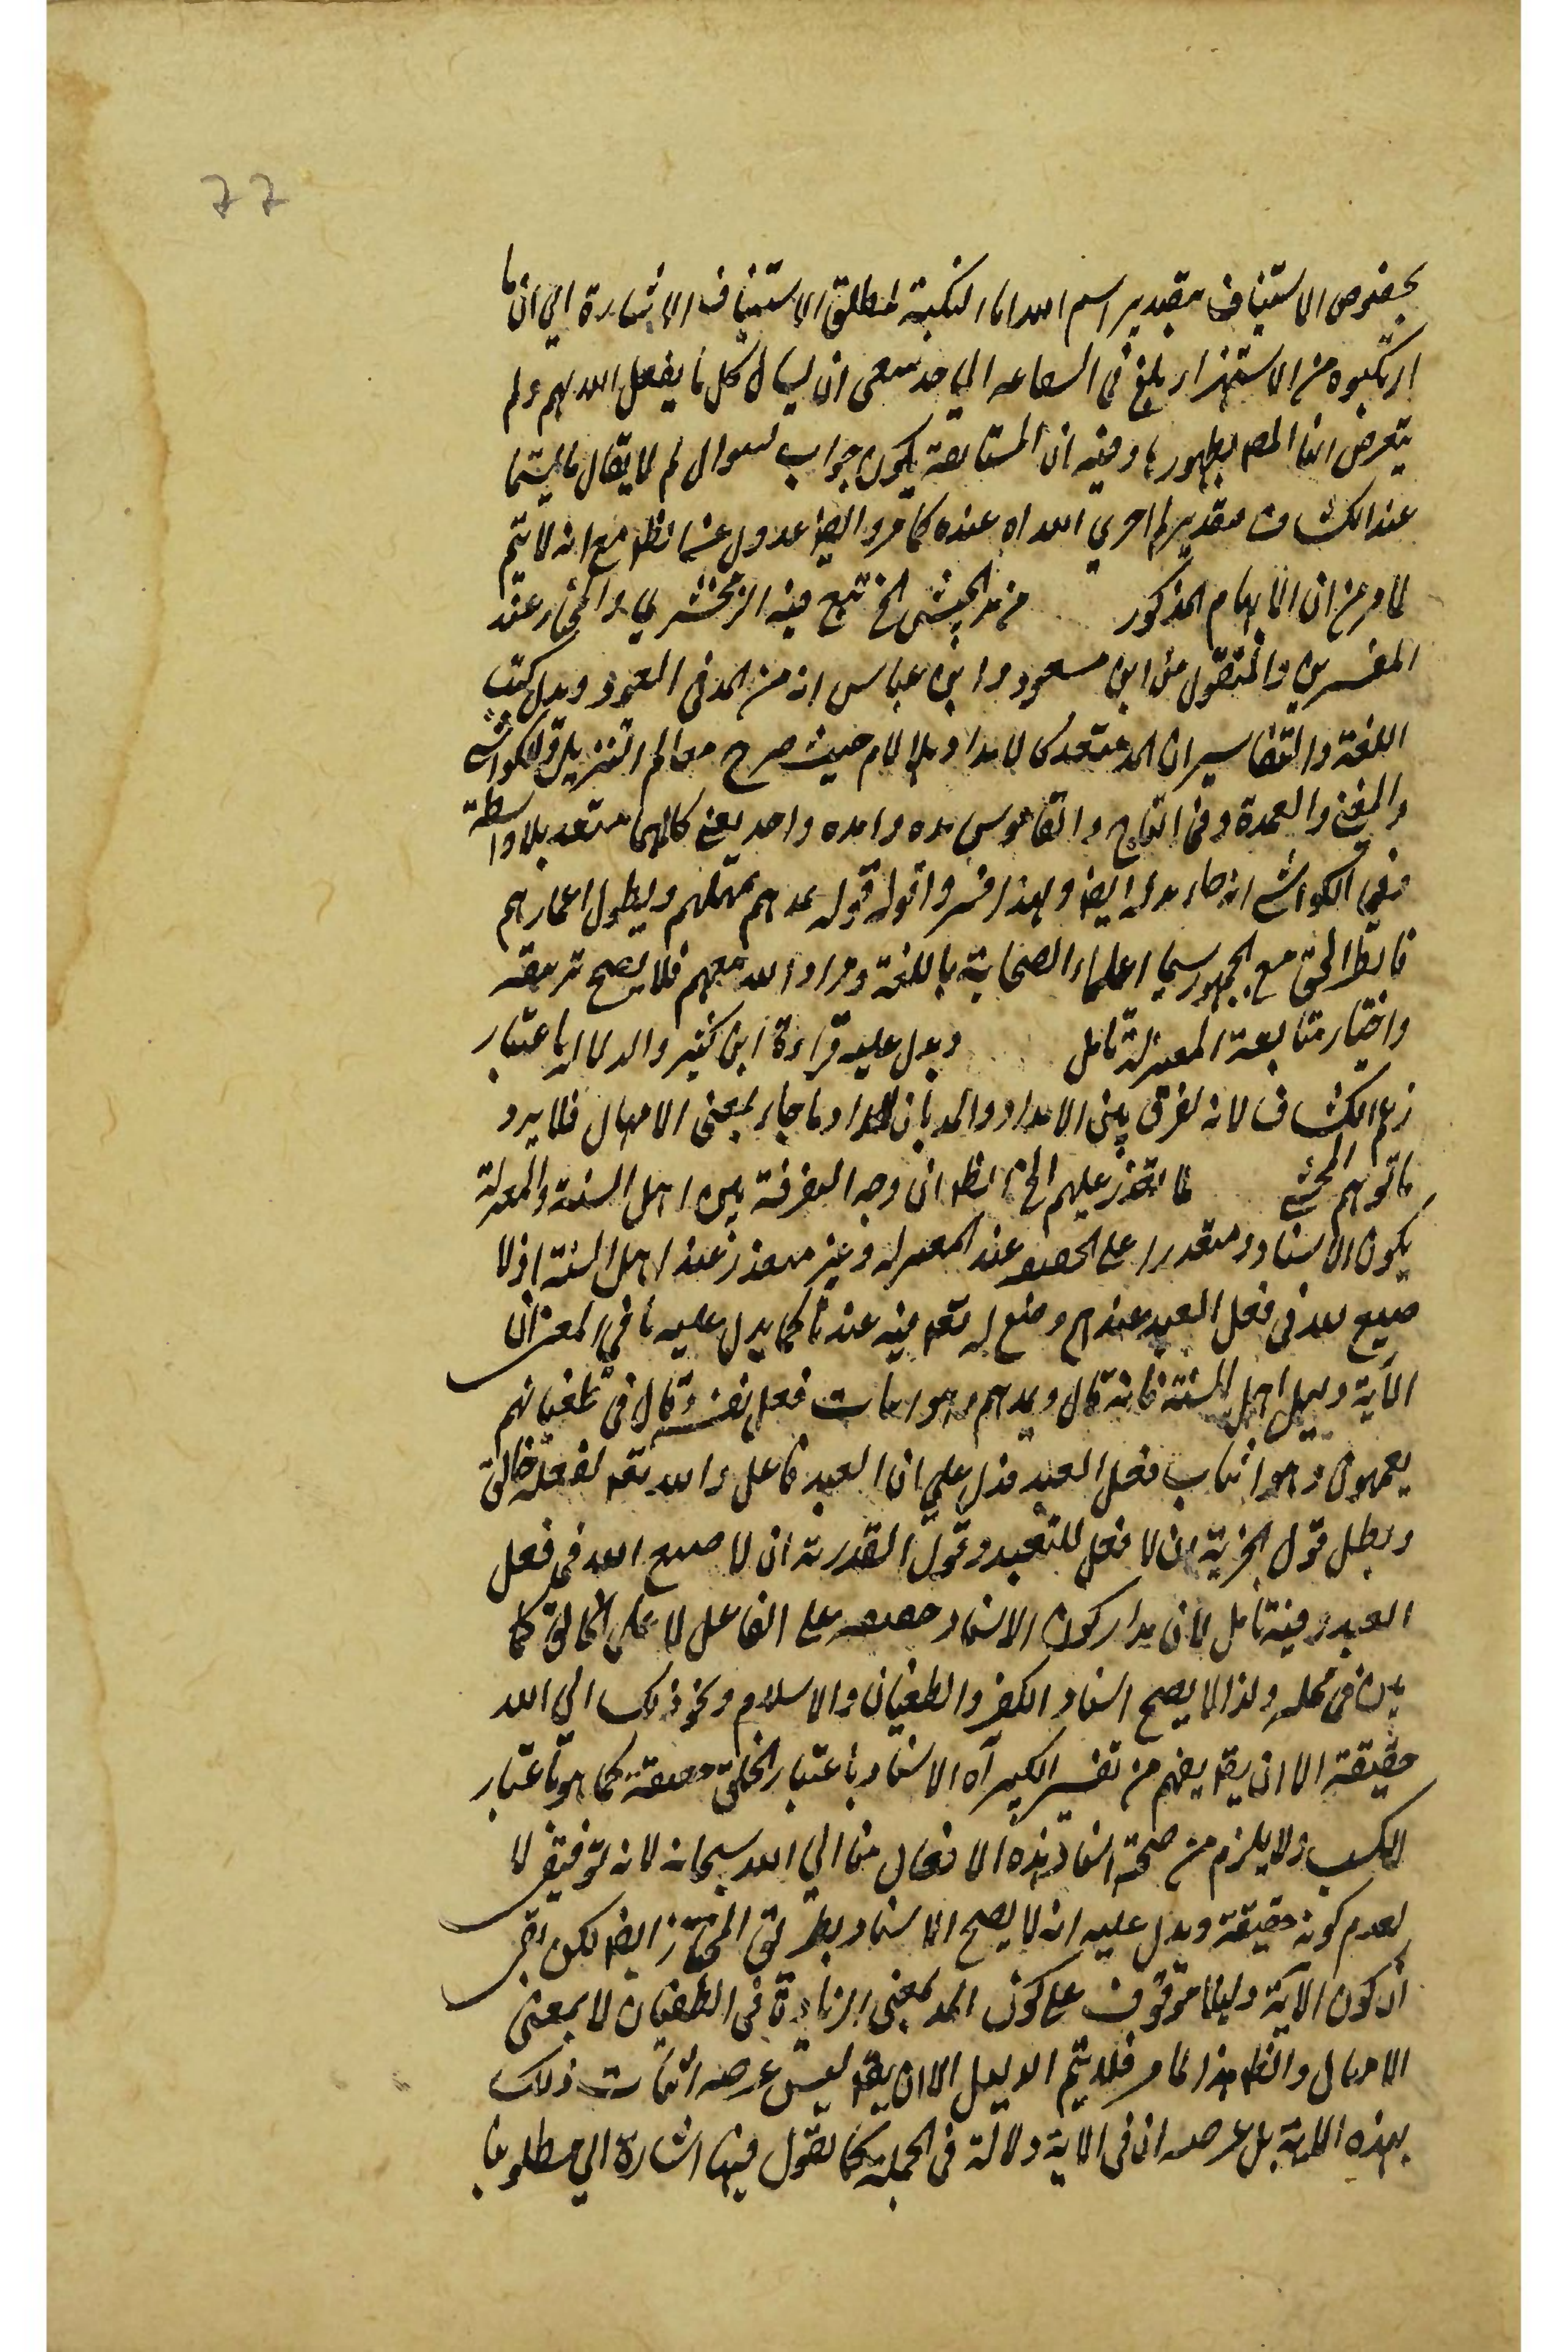 77
بخصوص الاستيناف بتقدير اسم الله اما النكتة لمطلق الاستيناف الاشارة الى ان ما
ارتكبوه من الاستهزاء بلغ في الشناعه الى حد ينبغي ان يسال كل ما يفعل الله بهم ولم
يتعرض لها المص بظهورها وفيه ان المستانفة يكون جواب لسوال لم لا يقال
عند الكشاف بتقدير له اخرى عنده كما مر وايض عدول عن الظ مع انه لا يتم
لما مر من ان الابهام المذكور من مد الجيش الخ تبع فيه الزمخشري والمختار عند
المفسرين والمنقول من ابن مسعود وابن عباس انه من المد في العمر ويدل كتب
اللغة والتفاسير ان المد متعد كالامداد بلا لام حيث صرح معالم التنزيل والكواشي
والمغني والعمدة وفي التاج والقاموس مده وامده واحد يعني كلاهما متعد بلا واسطة
ففي الكواشي انه جاء مد له ايض ولهذا فسروا قوله يمدهم يمهلهم ويطول اعمارهم
فالظ الحق مع الجمهور سيما اعلماء الصحابة باللغة ومراد الله معهم فلا يصح تزييفه
واختيار متابعة المعتزلة تامل ويدل عليه قراءة ابن كثير والدلالة باعتبار
زعم الكشاف لانه لفرق بين الامداد والمد بان الامداد ما جاء بمعنى الامهال فلا يرد
ما توهم المحشي لما تعذر عليهم الخ الظ ان وجه التفرقة بين اهل السنة والمعتزلة
يكون الاسناد متعذرا على الحقيقة عند المعتزلة وغير متعذر عند اهل السنة اذ لا
صنيع لله في فعل العبد عندهم وصنع له تعه فيه عندنا كما يدل عليه ما في ان
الآية دليل اهل السنة فانه قال ويمدهم وهو اثبات فعل نفسه وقال في طغيانهم
يعمهون وهو اثبات فعل العبد فدل على ان العبد فاعل والله تعه لفعله خالق
وبطل قول الجبرية ان لا فعل للعبد وقول القدرية ان لا صنع الله في فعل
العبد وفيه تامل لان مدار كون الاسناد حقيقة على الفاعل لا على الخالق كما
بين في محله ولذا لا يصح اسناد الكفر والطغيان والاسلام ونحو ذلك الى الله
حقيقة الا ان يقه يفهم من تفسير الكبير ان الاسناد باعتبار الخلق حقيقة كما هو باعتبار
الكسب ولا يلزم من صحة اسناد هذه الافعال منا الى الله سبحانه لانه توقيفي لا
لعدم كونه حقيقة ويدل عليه انه لا يصح الاسناد بطريق المجاز ايض لكن بقي
ان كون الآية دليلا موقوف على كون المد بمعنى الزيادة في الطغيان لا بمعنى
الامهال والظ هذا لما مر فلا يتم الدليل الا ان يقه ليس غرضه اثبات ذلك
بهذه الاية بل غرضه ان في الاية دلالة في الجملة كما نقول فيها اشارة الى مطلوبنا